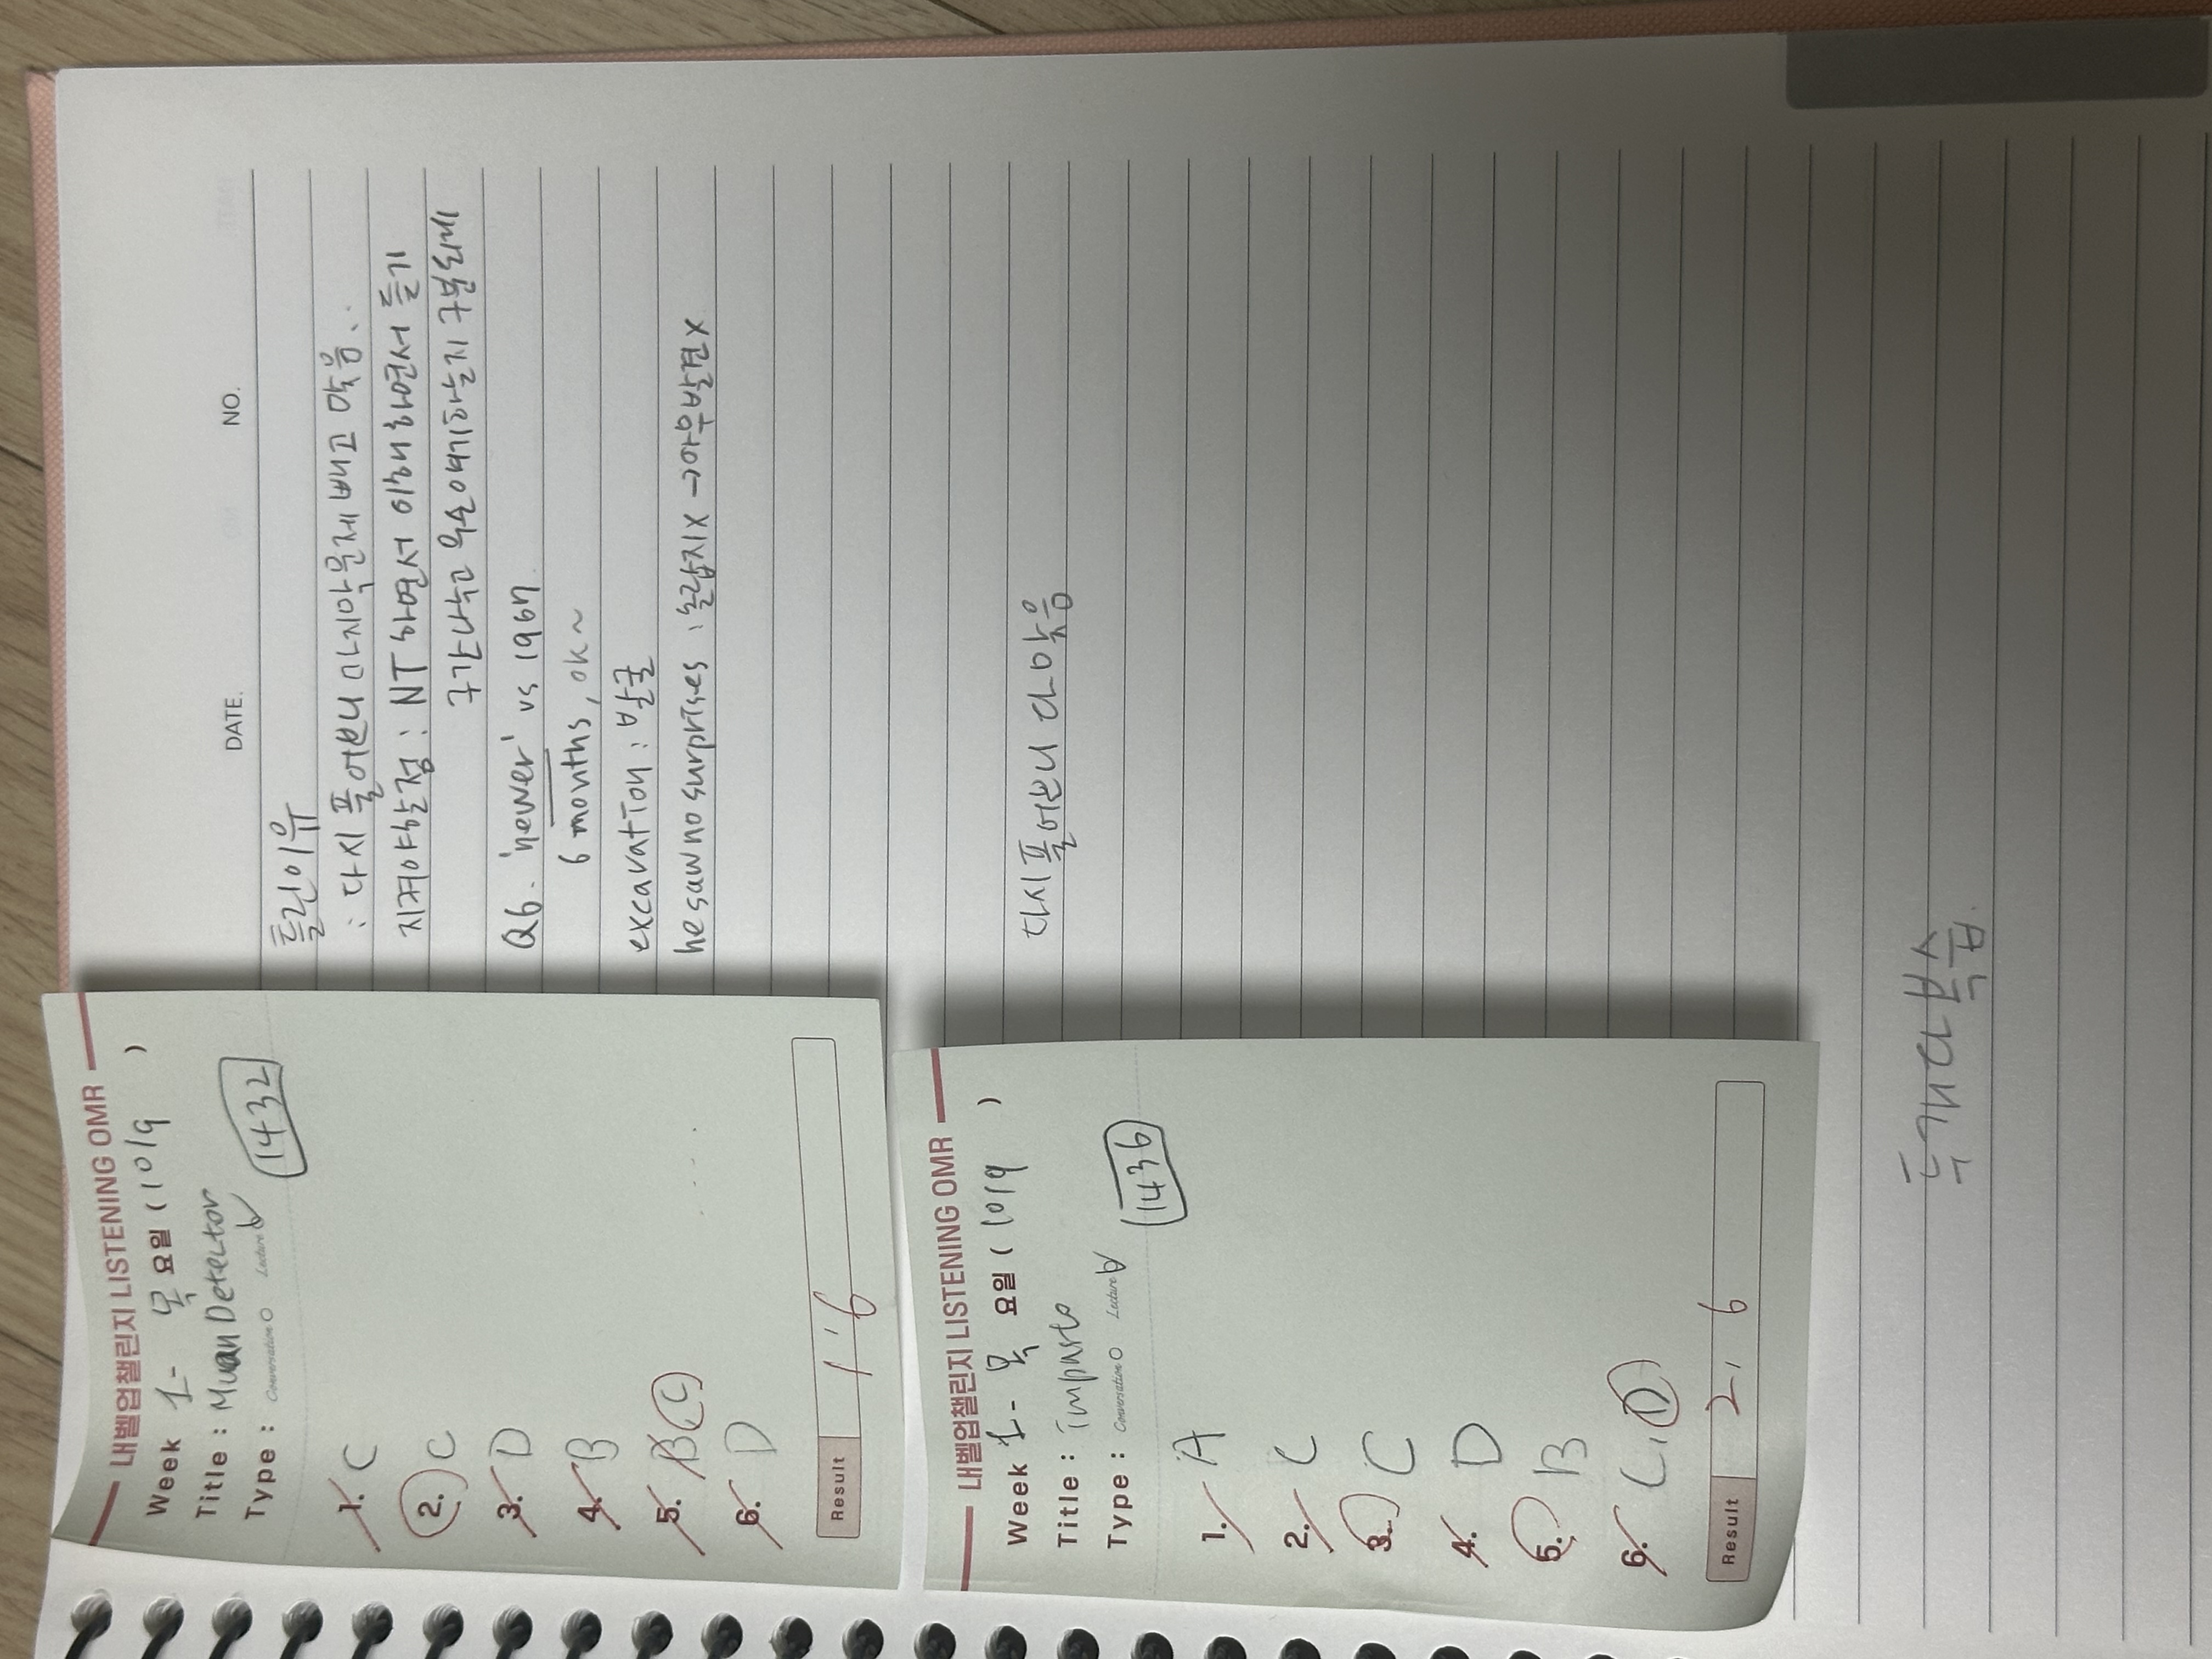 DATE.
NO.
내벨업챌린지 LISTENING OMR
Week 1- 목 요일 ( 10/9 )
Title : Muon Detector
Type : Conversation Lecture
1432
1. C
2. C
3. D
4. B
5. B C
6. D
Result 1 / 6
틀린이유
: 다시 풀어보니 마지막문제 빼고 맞음..
지켜야할점 : NT 하면서 이해하면서 듣기
구간나누고 약속 얘기하는지 구분되게
Q6. 'newer' vs 1967
6 months, ok~
excavation : 발굴
he saw no surprises : 놀랍지X → 아무발견X
내벨업챌린지 LISTENING OMR
Week 1- 목 요일 ( 10/9 )
Title : impasto
Type : Conversation Lecture
1436
1. A
2. C
3. C
4. D
5. B
6. C, D
Result 2, 6
다시 풀어보니 다 맞음
두개다 복습.